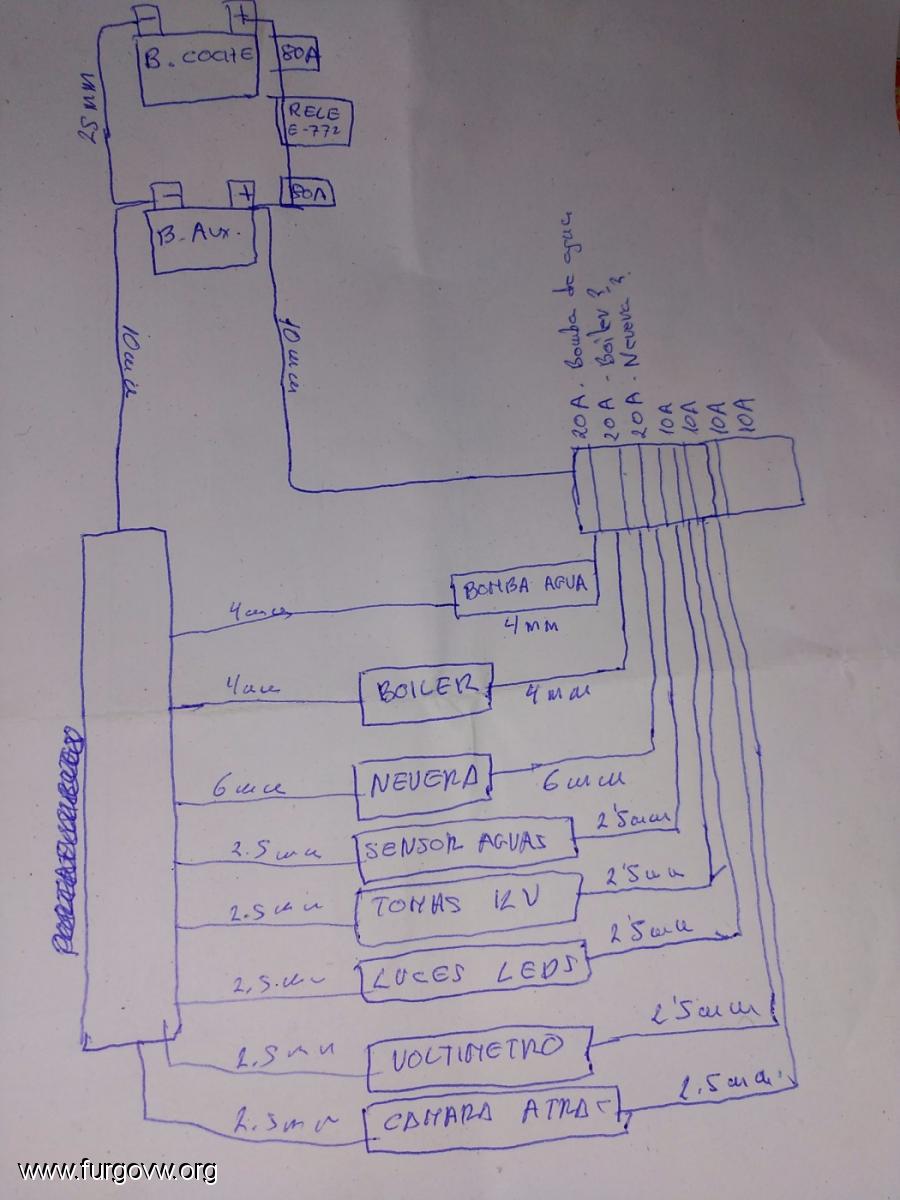 - +
B. COCHE
80A
25 mm
RELE
E-772
- +
80A
B. Aux.
10 mm
10 mm
20A. Bomba de agua
20A - Boiler?
20A - Nevera?
10A
10A
10A
10A
4 mm
BOMBA AGUA
4 mm
4 mm
BOILER
4 mm
6 mm
NEVERA
6 mm
2.5 mm
SENSOR AGUAS
2'5 mm
2.5 mm
TOMAS 12V
2'5 mm
2.5 mm
LUCES LEDS
2'5 mm
2.5 mm
VOLTIMETRO
2'5 mm
2.5 mm
CAMARA ATRAS
2.5 mm
www.furgovw.org